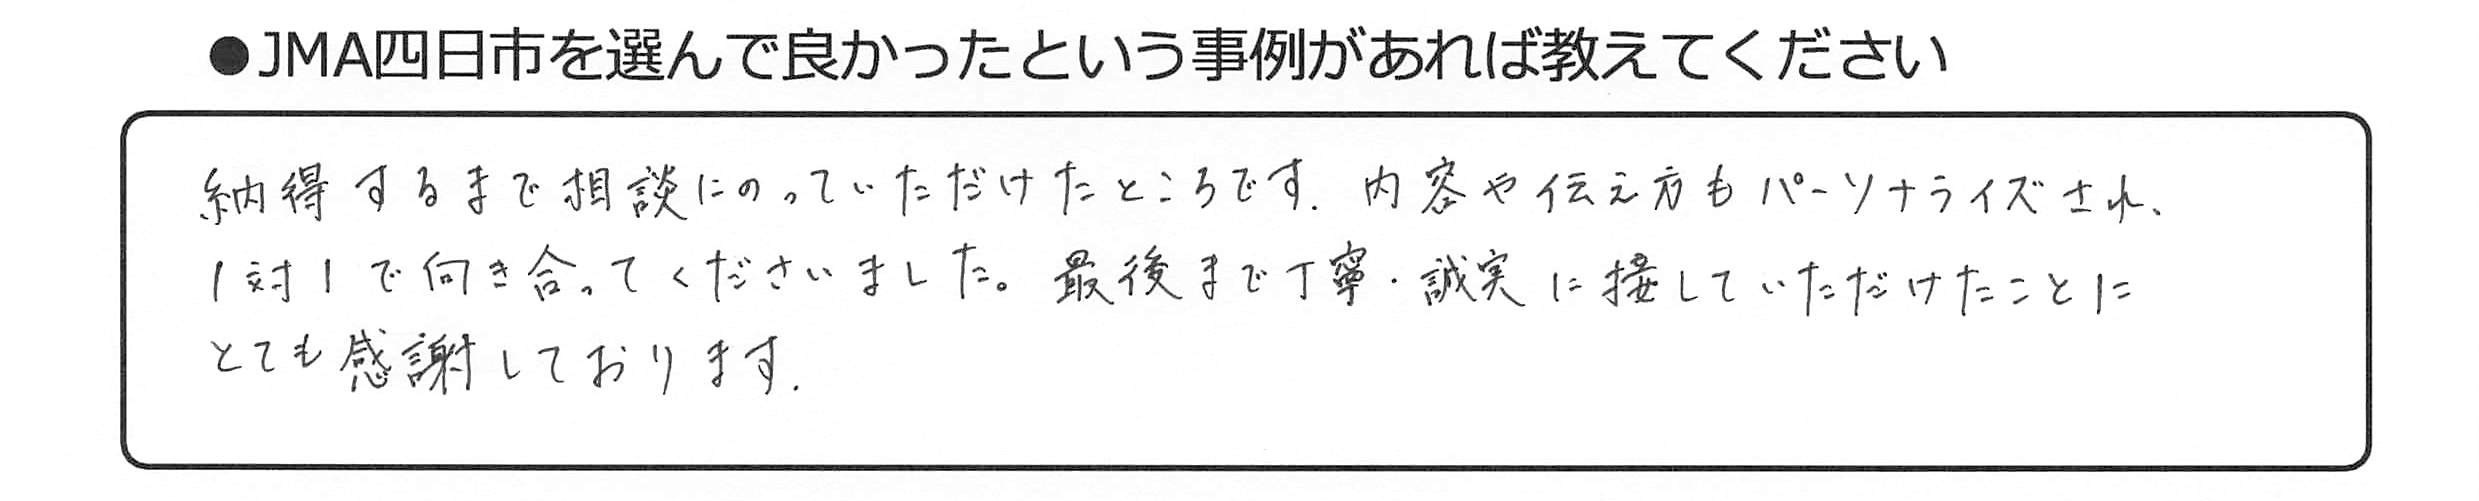 ●JMA四日市を選んで良かったという事例があれば教えてください
納得するまで相談にのっていただけたところです. 内容や伝え方もパーソナライズされ、
1対1で向き合ってくださいました。最後まで丁寧・誠実に接していただけたことに
とても感謝しております.